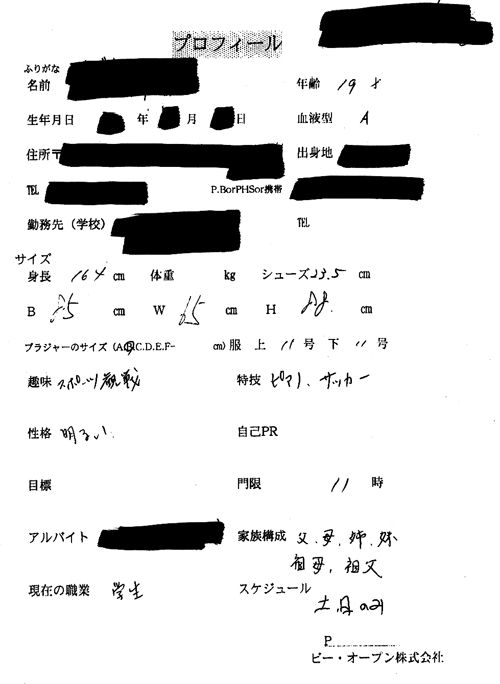 プロフィール
ふりがな
名前 年齢 19才
生年月日 年 月 日 血液型 A
住所〒 出身地
TEL P.BorPHSor携帯
勤務先（学校） TEL
サイズ
身長 164 cm 体重 kg シューズ 23.5 cm
B 85 cm W 65 cm H 88. cm
ブラジャーのサイズ（A.B.C.D.E.F- cm）服 上 11 号 下 11 号
趣味 スポーツ観戦 特技 ピアノ、サッカー
性格 明るい 自己PR
目標 門限 11 時
アルバイト 家族構成 父、母、姉、妹
祖母、祖父
現在の職業 学生 スケジュール
土、日のみ
P
ビー・オープン株式会社